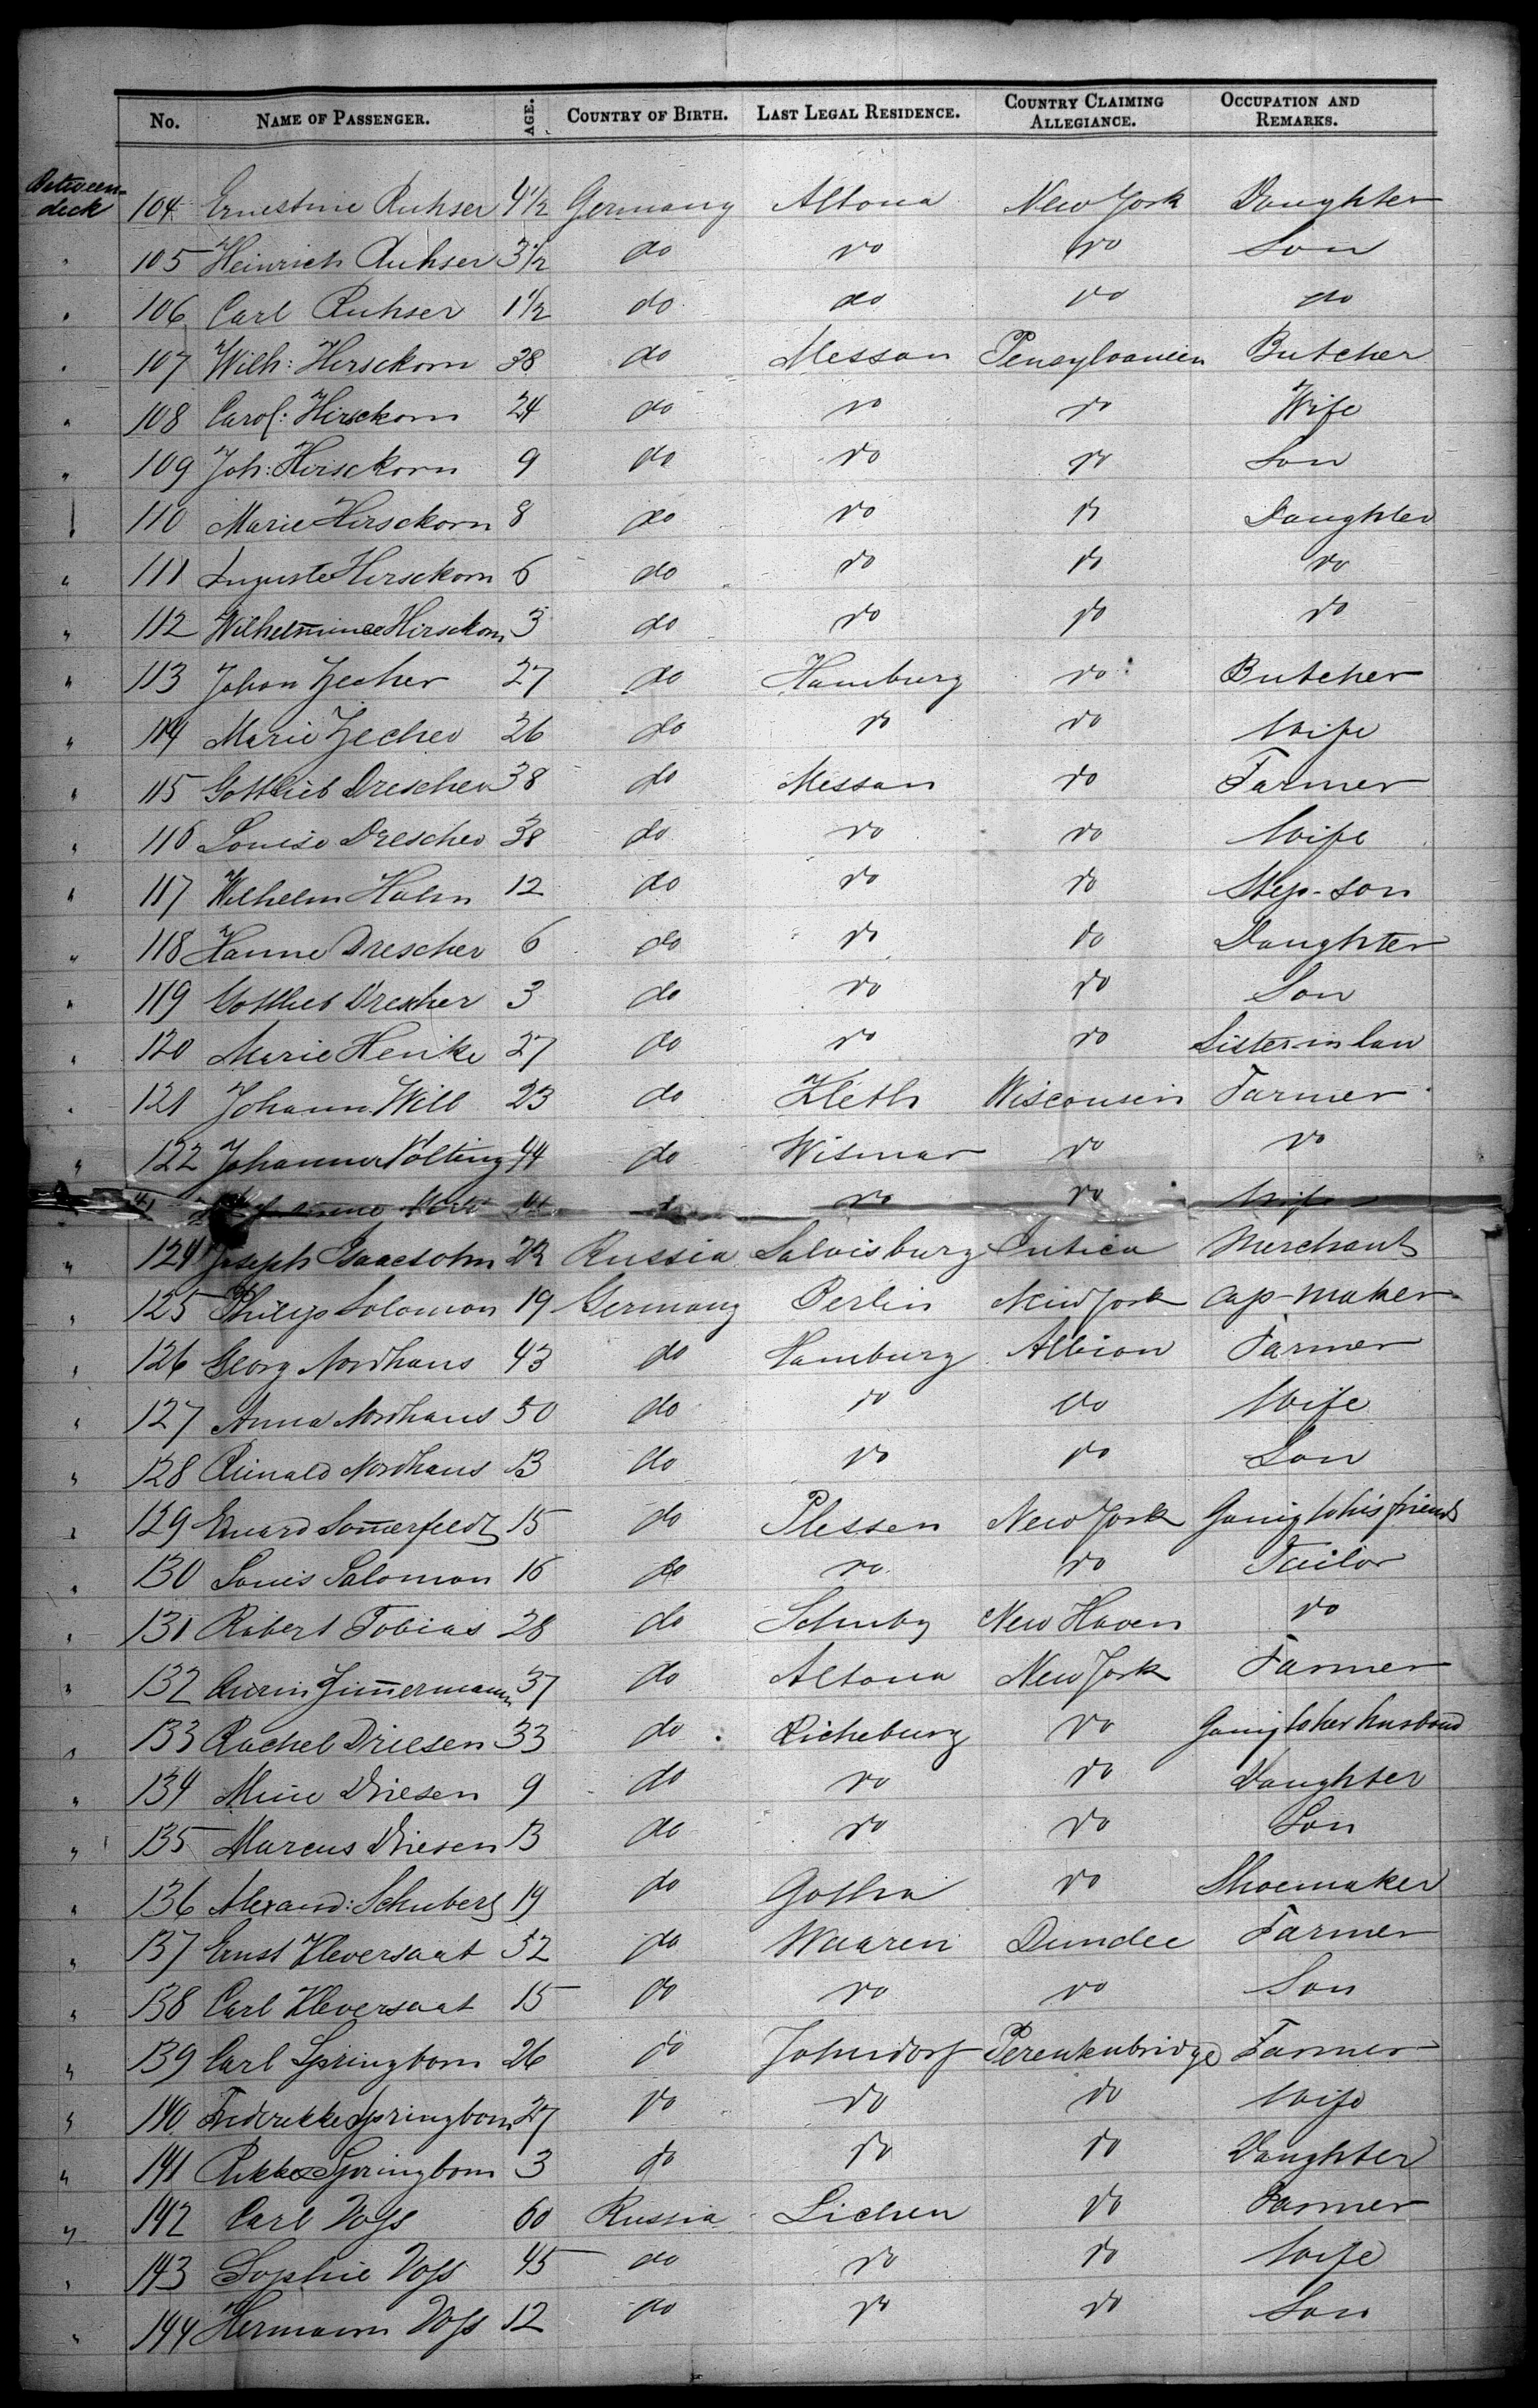 No. NAME OF PASSENGER. AGE. COUNTRY OF BIRTH. LAST LEGAL RESIDENCE. COUNTRY CLAIMING ALLEGIANCE. OCCUPATION AND REMARKS.
Between-deck 104 Ernestine Ruhser 4 1/2 Germany Altona New York Daughter
" 105 Heinrich Ruhser 3 1/2 do do do Son
" 106 Carl Ruhser 1 1/2 do do do do
" 107 Wilh: Hirsekorn 38 do Messan Pensylvanien Butcher
" 108 Carol: Hirsekorn 24 do do do Wife
" 109 Joh: Hirsekorn 9 do do do Son
110 Marie Hirsekorn 8 do do do Daughter
" 111 Auguste Hirsekorn 6 do do do do
" 112 Wilhelmine Hirsekorn 3 do do do do
" 113 Johan Zecher 27 do Hamburg do Butcher
" 114 Marie Zecher 26 do do do Wife
" 115 Gottlieb Drescher 38 do Messan do Farmer
" 116 Louise Drescher 38 do do do Wife
" 117 Wilhelm Hahn 12 do do do Step-son
" 118 Hanne Drescher 6 do do do Daughter
" 119 Gottlieb Drescher 3 do do do Son
" 120 Marie Henike 27 do do do Sister in law
" 121 Johann Will 23 do Kleth Wisconsin Farmer
" 122 Johann Nölting 44 do Wismar do do
do do Wife
" 124 Joseph Isaacsohn 22 Russia Salvisburg Merchant
" 125 Philip Solomon 19 Germany Berlin New York Cap-maker
" 126 Georg Nordhaus 43 do Hamburg Albion Farmer
" 127 Anna Nordhaus 50 do do do Wife
" 128 Rinald Nordhaus 13 do do do Son
" 129 Eduard Somerfeldt 15 do Plessen New York Going to his friends
" 130 Louis Salomon 16 do do do Tailor
" 131 Robert Tobias 28 do Schuby New Haven do
" 132 Zimmermann 37 do Altona New York Farmer
" 133 Rachel Driesen 33 do Richeburg do Going to her husband
" 134 Mine Driesen 9 do do do Daughter
" 135 Marcus Driesen 13 do do do Son
" 136 Alexand: Schubert 19 do Gotha do Shoemaker
" 137 Ernst Kleversaat 52 do Waaren Dundee Farmer
" 138 Carl Kleversaat 15 do do do Son
" 139 Carl Springborn 26 do Johndorf Farmer
" 140 Friderikke Springborn 27 do do do Wife
" 141 Rikke Springborn 3 do do do Daughter
" 142 Carl Voss 60 Russia Lichen do Farmer
" 143 Sophie Voss 45 do do do Wife
" 144 Hermann Voss 12 do do do Son